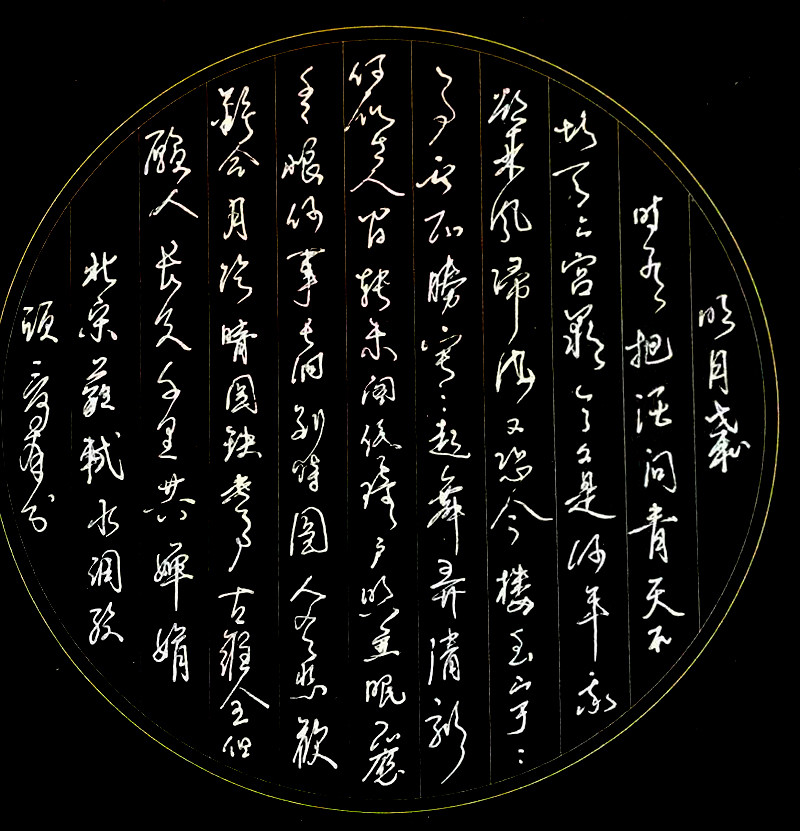 明月幾
時有把酒問青天不
知天上宮闕今夕是何年我
欲乘風歸去又恐樓玉宇
高處不勝寒起舞弄清影
何似在人間轉朱閣低綺戶照無眠不應
有恨何事長向別時圓人有悲歡
離合月陰晴圓缺此事古難全但
願人長久千里共嬋娟
北宋蘇軾水調歌
頭